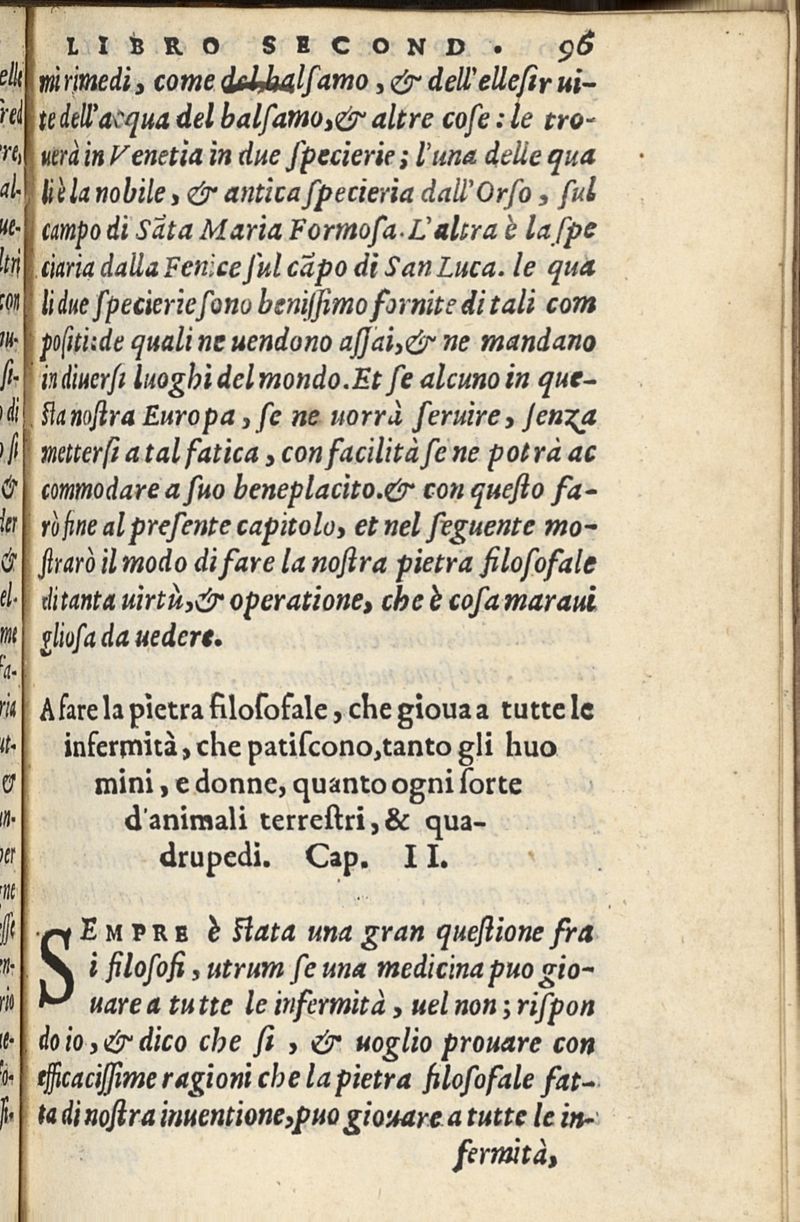 LIBRO SECOND. 96
mi rimedi, come del balſamo, & dell'elleſir ui-
te dell'acqua del balſamo, & altre coſe: le tro-
uerà in Venetia in due ſpecierie; l'una delle qua
li è la nobile, & antica ſpecieria dall'Orſo, ſul
campo di Sãta Maria Formoſa. L'altra è la ſpe
ciaria dalla Fenice ſul cãpo di San Luca. le qua
li due ſpecierie ſono beniſſimo fornite di tali com
poſiti: de quali ne uendono aſſai, & ne mandano
in diuerſi luoghi del mondo. Et ſe alcuno in que-
ſta noſtra Europa, ſe ne uorrà ſeruire, ſenza
metterſi a tal fatica, con facilità ſe ne potrà ac
commodare a ſuo beneplacito. & con queſto fa-
rò fine al preſente capitolo, et nel ſeguente mo-
ſtrarò il modo di fare la noſtra pietra filoſofale
di tanta uirtù, & operatione, che è coſa maraui
glioſa da uedere.
A fare la pietra filoſofale, che gioua a tutte le
infermità, che patiſcono, tanto gli huo
mini, e donne, quanto ogni ſorte
d'animali terreſtri, & qua-
drupedi. Cap. II.
SEMPRE è ſtata una gran queſtione fra
i filoſofi, utrum ſe una medicina puo gio-
uare a tutte le infermità, uel non; riſpon
do io, & dico che ſi, & uoglio prouare con
efficaciſſime ragioni che la pietra filoſofale fat-
ta di noſtra inuentione, puo giouare a tutte le in-
fermità,